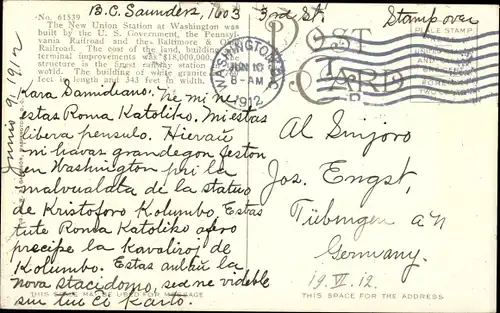 B.C. Saunders, 1603 3rd St. Stamp over
No. 61539
The New Union Station at Washington was
built by the U. S. Government, the Pennsyl-
vania Railroad and the Baltimore & O
Railroad. The cost of the land, building
terminal improvements was $18,000,000.
structure is the finest railway station
world. The building of white granite
feet in length and 343 feet in width.
WASHINGTON, D.C.
JUN 10
8-AM
1912
POST CARD
PLACE STAMP
Junio 9, 1912
Kara Samideano: Ne mi ne
estas Roma Katoliko. Mi estas
libera pensulo. Hieraŭ
ni havas grandegon feston
en Washington pri la
malvualata de la statuo
de Kristoforo Kolumbo. Estas
tute Roma Katoliko afero
precipe la Kavaliroj de
Kolumbo. Estas ankaŭ la
nova stacidomo, sed ne videble
sur tiu ĉi karto.
Al Sinjoro
Jos. Engst,
Tübingen a/n
Germany.
19. VI. 12.
THIS SPACE MAY BE USED FOR MESSAGE
THIS SPACE FOR THE ADDRESS